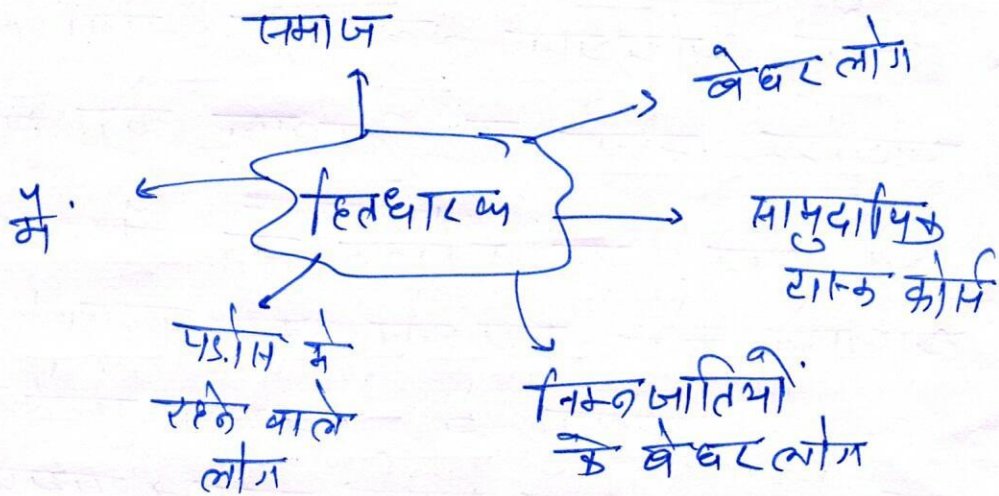 समाज
बेघर लोग
हितधारक
मैं
सामुदायिक
टास्क फोर्स
पड़ोस मे
रहने वाले
लोग
निम्न जातियों
के बेघर लोग